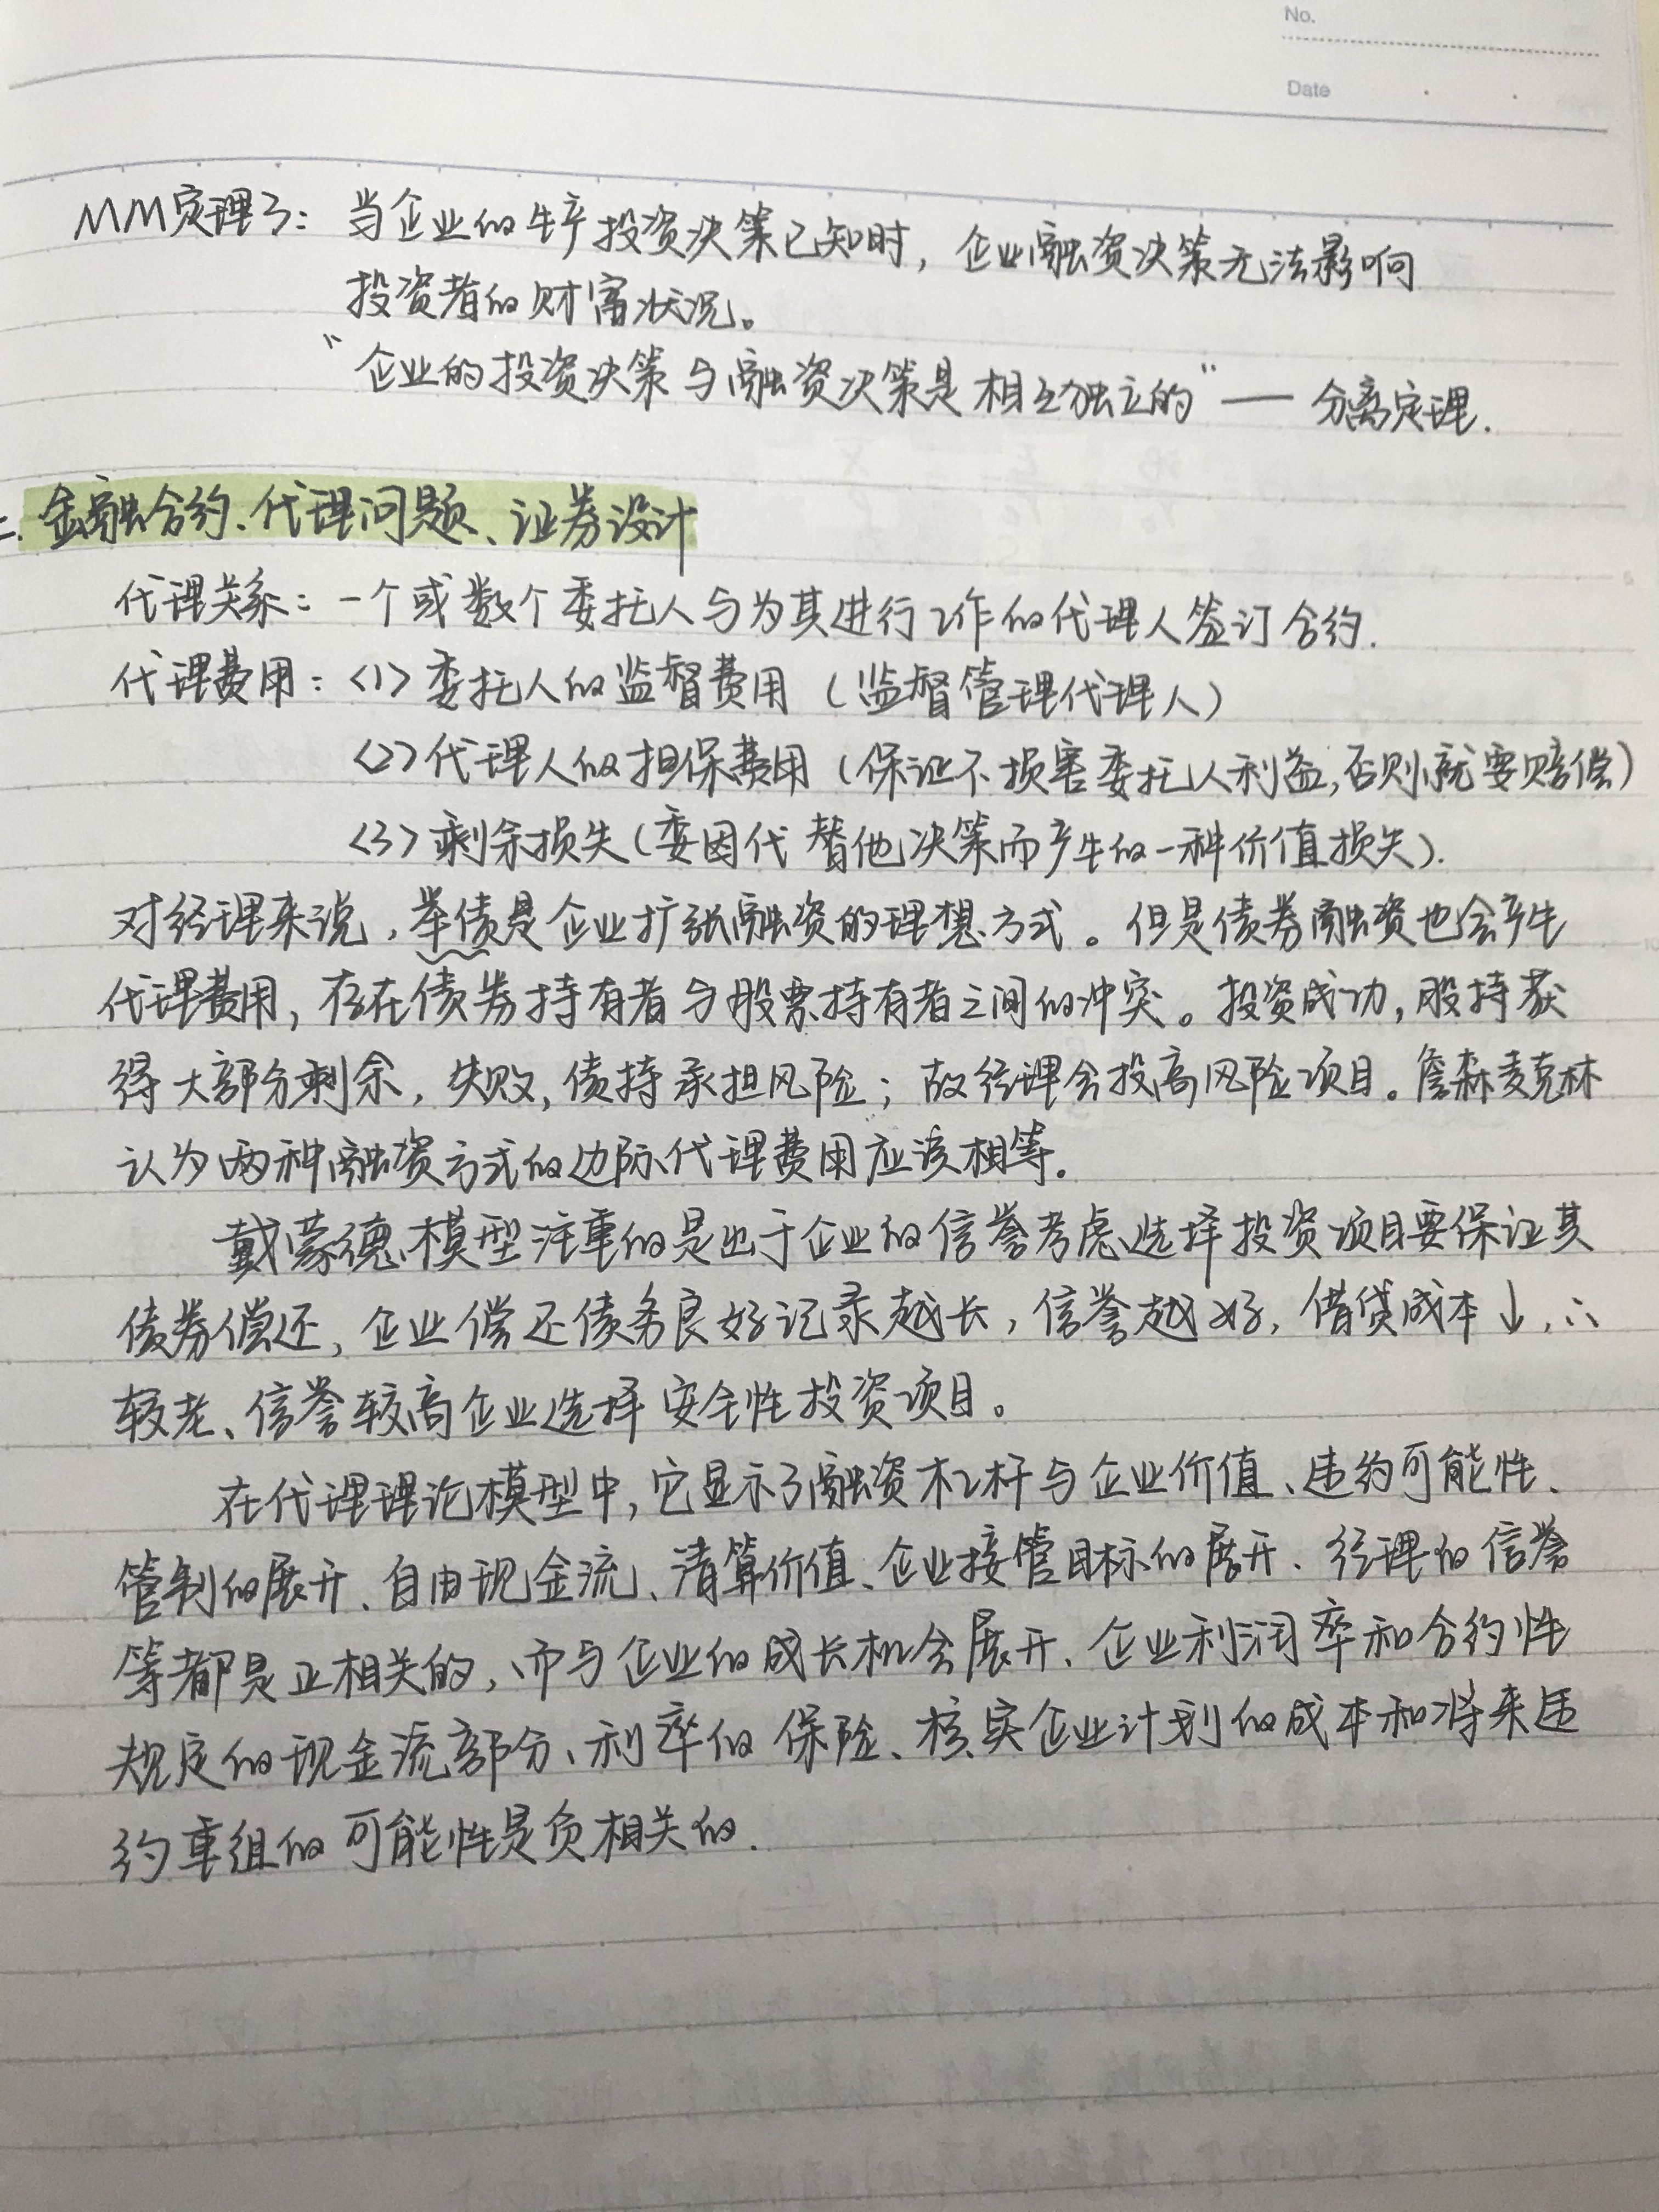 No.
Date
MM定理3：当企业的生产投资决策已知时，企业融资决策无法影响
投资者的财富状况。
“企业的投资决策与融资决策是相互独立的”—— 分离定理.
二.金融合约、代理问题、证券设计
代理关系：一个或数个委托人与为其进行工作的代理人签订合约.
代理费用：<1>委托人的监督费用（监督管理代理人）
<2>代理人的担保费用（保证不损害委托人利益,否则就要赔偿）
<3>剩余损失(委因代替他决策而产生的一种价值损失).
对经理来说，举债是企业扩张融资的理想方式。但是债券融资也会产生
代理费用，存在债券持有者与股票持有者之间的冲突。投资成功，股持获
得大部分剩余，失败，债持承担风险；故经理会投高风险项目。詹森麦克林
认为两种融资方式的边际代理费用应该相等。
戴蒙德模型注重的是出于企业的信誉考虑选择投资项目要保证其
债券偿还，企业偿还债务良好记录越长，信誉越好，借贷成本↓，∴
较老、信誉较高企业选择安全性投资项目。
在代理理论模型中，它显示了融资杠杆与企业价值、违约可能性、
管制的展开、自由现金流、清算价值、企业接管目标的展开、经理的信誉
等都是正相关的，而与企业的成长机会展开、企业利润率和合约性
规定的现金流部分、利率的保险、核实企业计划的成本和将来违
约重组的可能性是负相关的.